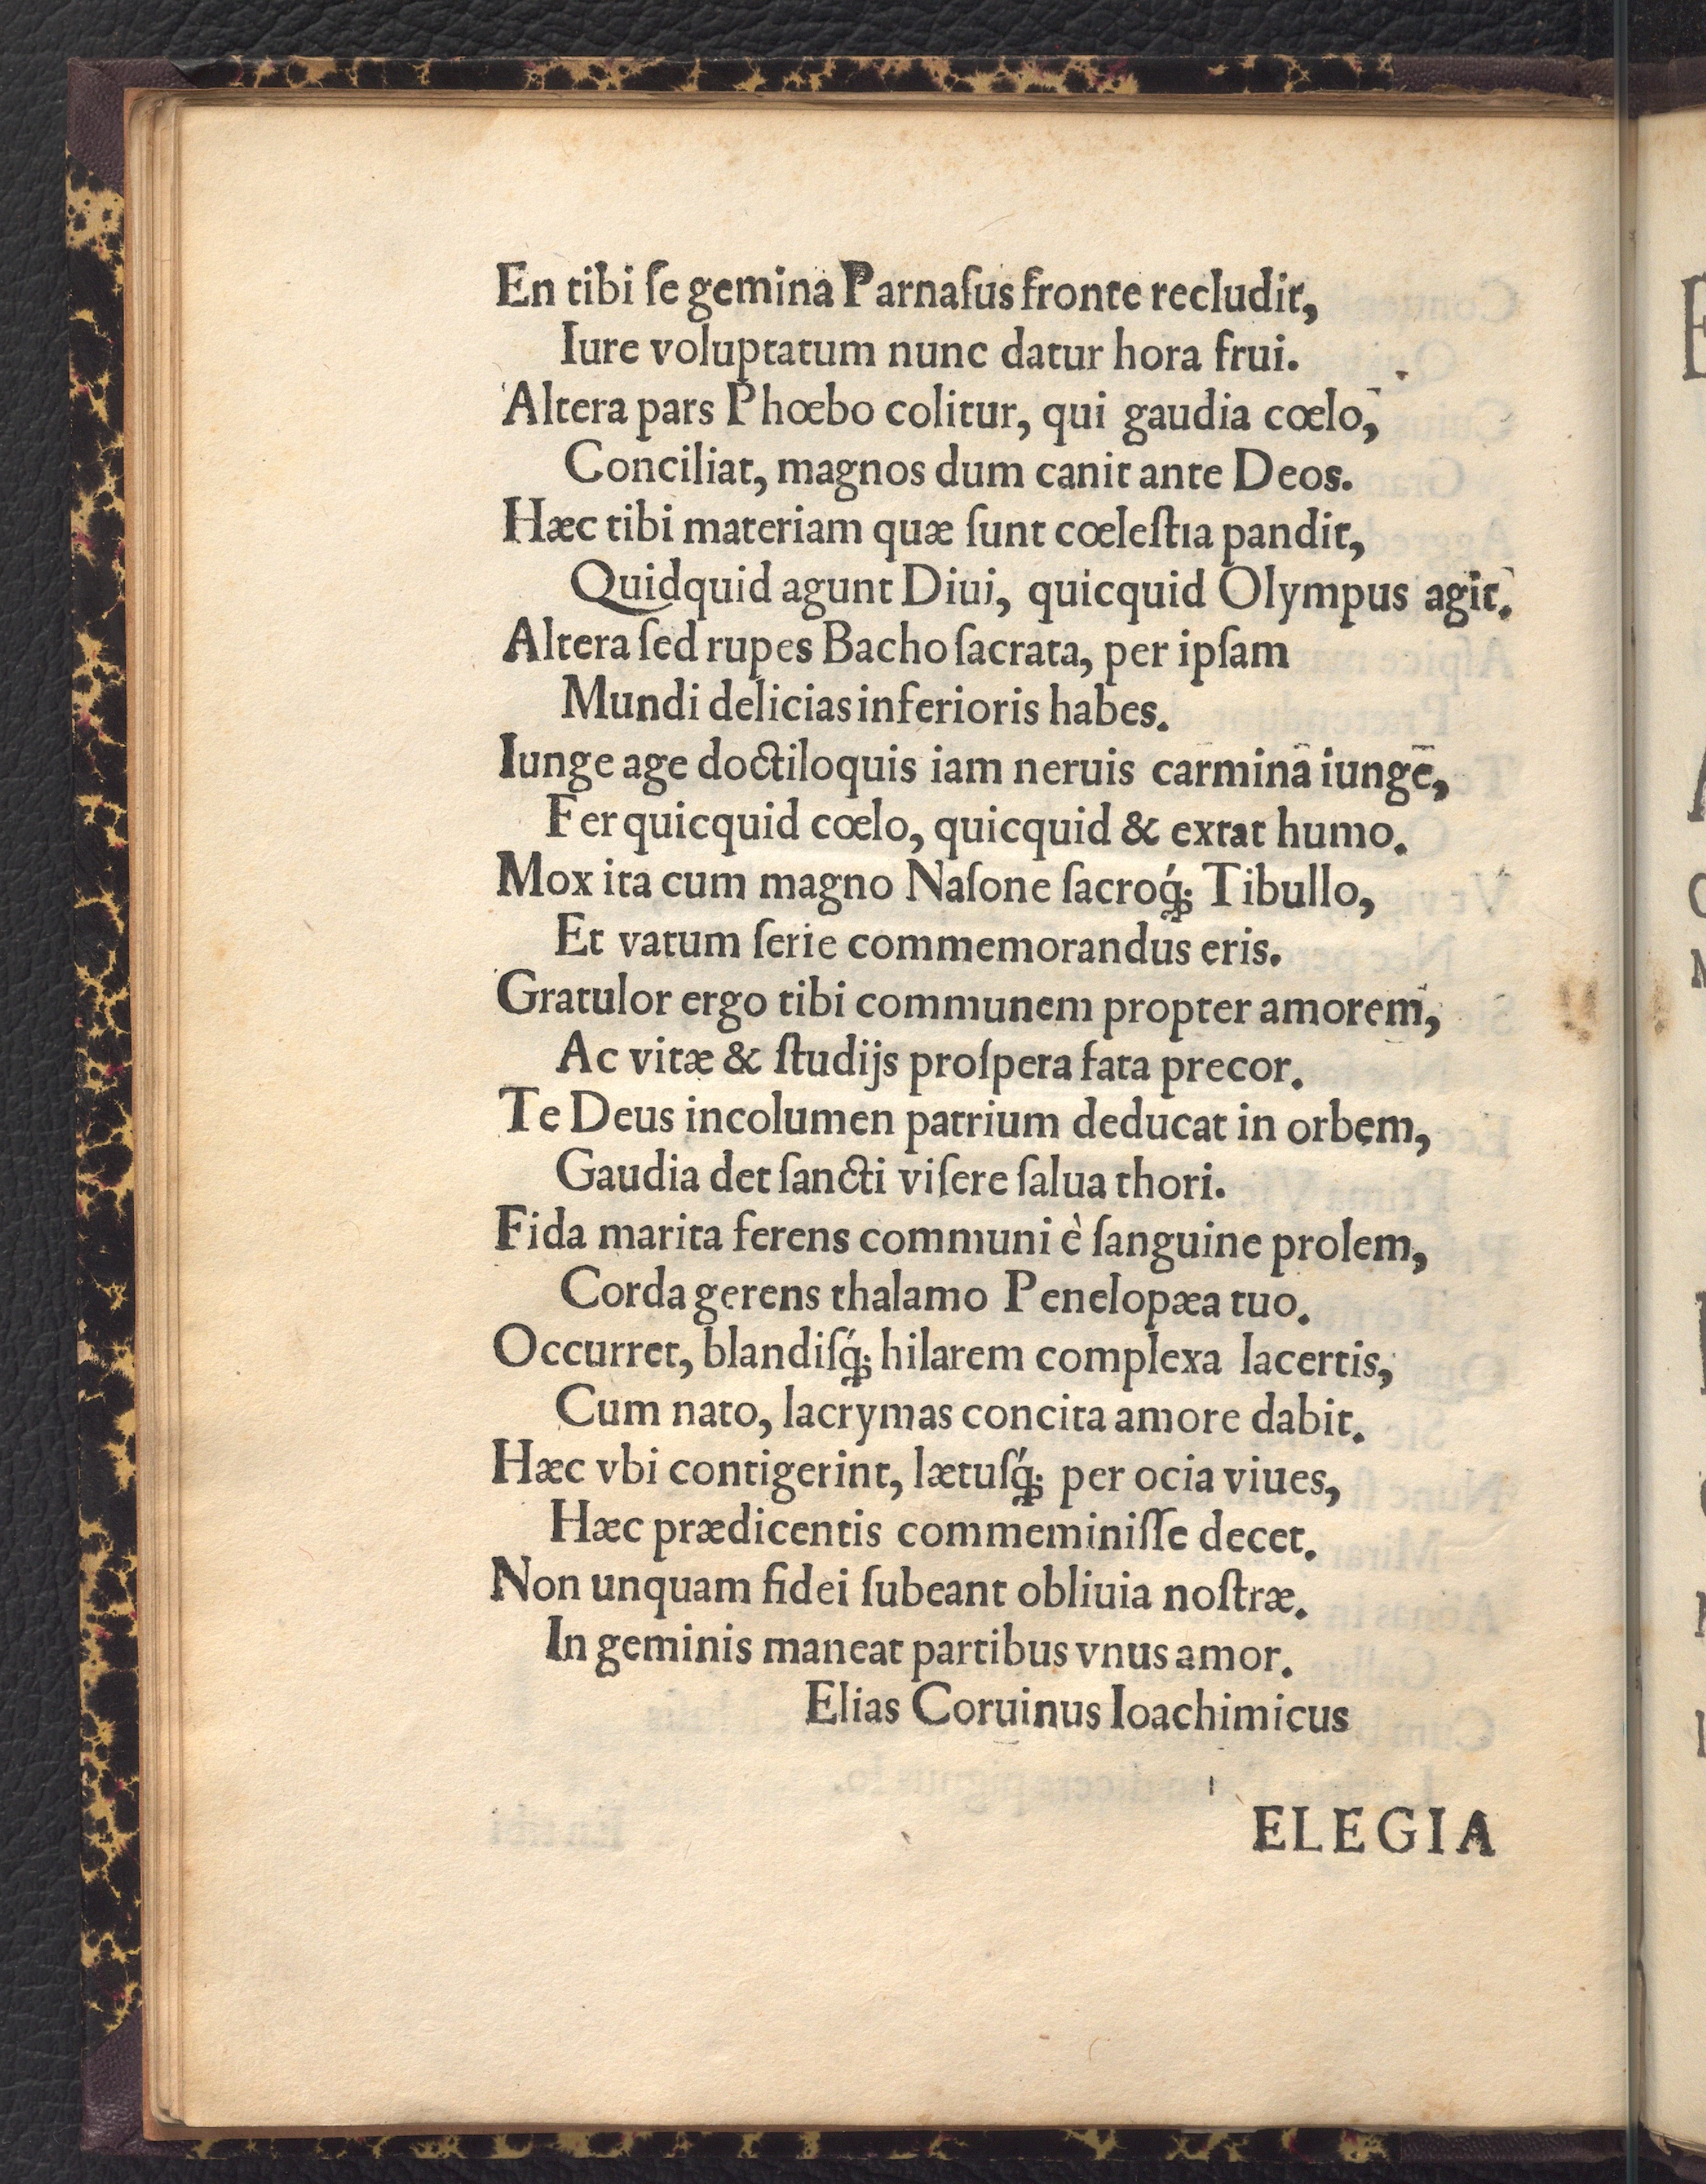 En tibi ſe gemina Parnaſus fronte recludit,
Iure voluptatum nunc datur hora frui.
Altera pars Phœbo colitur, qui gaudia cœlo,
Conciliat, magnos dum canit ante Deos.
Hæc tibi materiam quæ ſunt cœleſtia pandit,
Quidquid agunt Diui, quicquid Olympus agit.
Altera ſed rupes Bacho ſacrata, per ipſam
Mundi delicias inferioris habes.
Iunge age doctiloquis iam neruis carmina iunge,
Fer quicquid cœlo, quicquid & extat humo.
Mox ita cum magno Naſone ſacroq́; Tibullo,
Et vatum ſerie commemorandus eris.
Gratulor ergo tibi communem propter amorem,
Ac vitæ & ſtudijs proſpera fata precor.
Te Deus incolumen patrium deducat in orbem,
Gaudia det ſancti viſere ſalua thori.
Fida marita ferens communi è ſanguine prolem,
Corda gerens thalamo Penelopæa tuo.
Occurret, blandiſq́; hilarem complexa lacertis,
Cum nato, lacrymas concita amore dabit.
Hæc vbi contigerint, lætuſq́; per ocia viues,
Hæc prædicentis commeminiſſe decet.
Non unquam fidei ſubeant obliuia noſtræ.
In geminis maneat partibus vnus amor.
Elias Coruinus Ioachimicus
ELEGIA